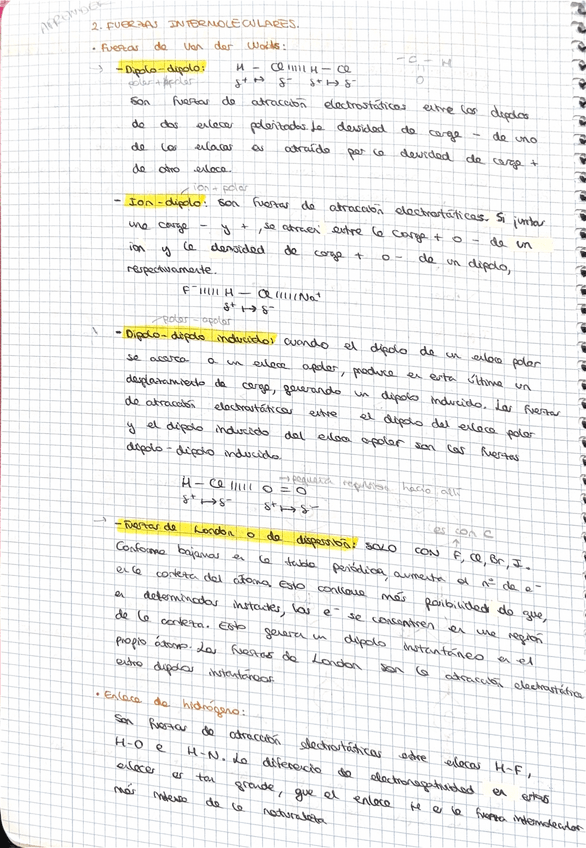 2. FUERZAS INTERMOLECULARES.
• Fuerzas de Van der Waals:
→ - Dipolo-dipolo: H - Cl ııııı H - Cl
polar + polar δ+ ↦ δ- δ+ ↦ δ-
- C - H
O
Son fuerzas de atracción electrostáticas entre los dipolos
de dos enlaces polarizados. La densidad de carga - de uno
de los enlaces es atraída por la densidad de carga +
de otro enlace.
ion - polar
- Ion-dipolo: Son fuerzas de atracción electrostáticas. Si juntar
una carga - y +, se atraen entre la carga + o - de un
ion y la densidad de carga + o - de un dipolo,
respectivamente.
F⁻ ııııı H - Cl ııııı Na⁺
δ+ ↦ δ-
polar - apolar
- Dipolo-dipolo inducido: cuando el dipolo de un enlace polar
se acerca a un enlace apolar, produce en esta última un
desplazamiento de carga, generando un dipolo inducido. Las fuerzas
de atracción electrostáticas entre el dipolo del enlace polar
y el dipolo inducido del enlace apolar son las fuerzas
dipolo-dipolo inducido.
→ pequeña repulsión hacia allí
H - Cl ııııı O = O
δ+ ↦ δ- δ+ ↦ δ-
es con C
→ - Fuerzas de London o de dispersión: SOLO CON F, Cl, Br, I.
Conforme bajamos en la tabla periódica, aumenta el nº de e⁻
en la corteza del átomo. Esto conlleva más posibilidad de que,
en determinados instantes, los e⁻ se concentren en una región
de la corteza. Esto genera un dipolo instantáneo en el
propio átomo. Las fuerzas de London son la atracción electrostática
entre dipolos instantáneos.
• Enlace de hidrógeno:
Son fuerzas de atracción electrostáticas entre enlaces H-F,
H-O e H-N. La diferencia de electronegatividad en estos
enlaces es tan grande, que el enlace H es la fuerza intermolecular
más intensa de la naturaleza